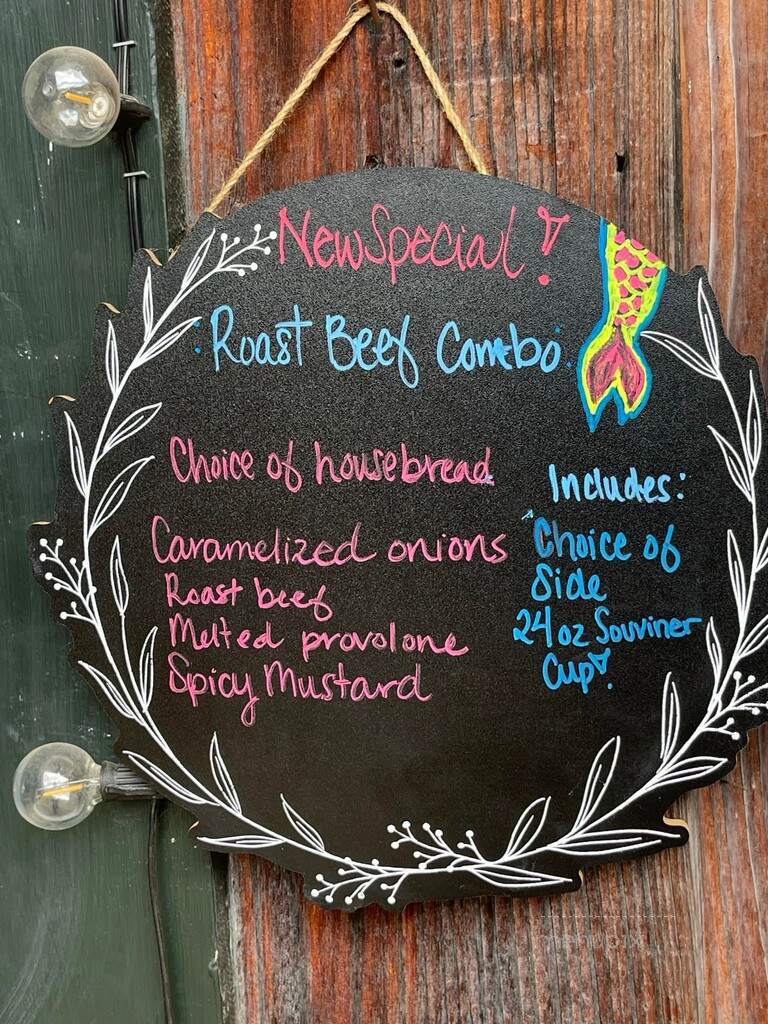 New Special!
Roast Beef Combo
Choice of housebread
Caramelized onions
Roast beef
Melted provolone
Spicy Mustard
Includes:
Choice of
Side
24oz Souviner
Cup!
menupix